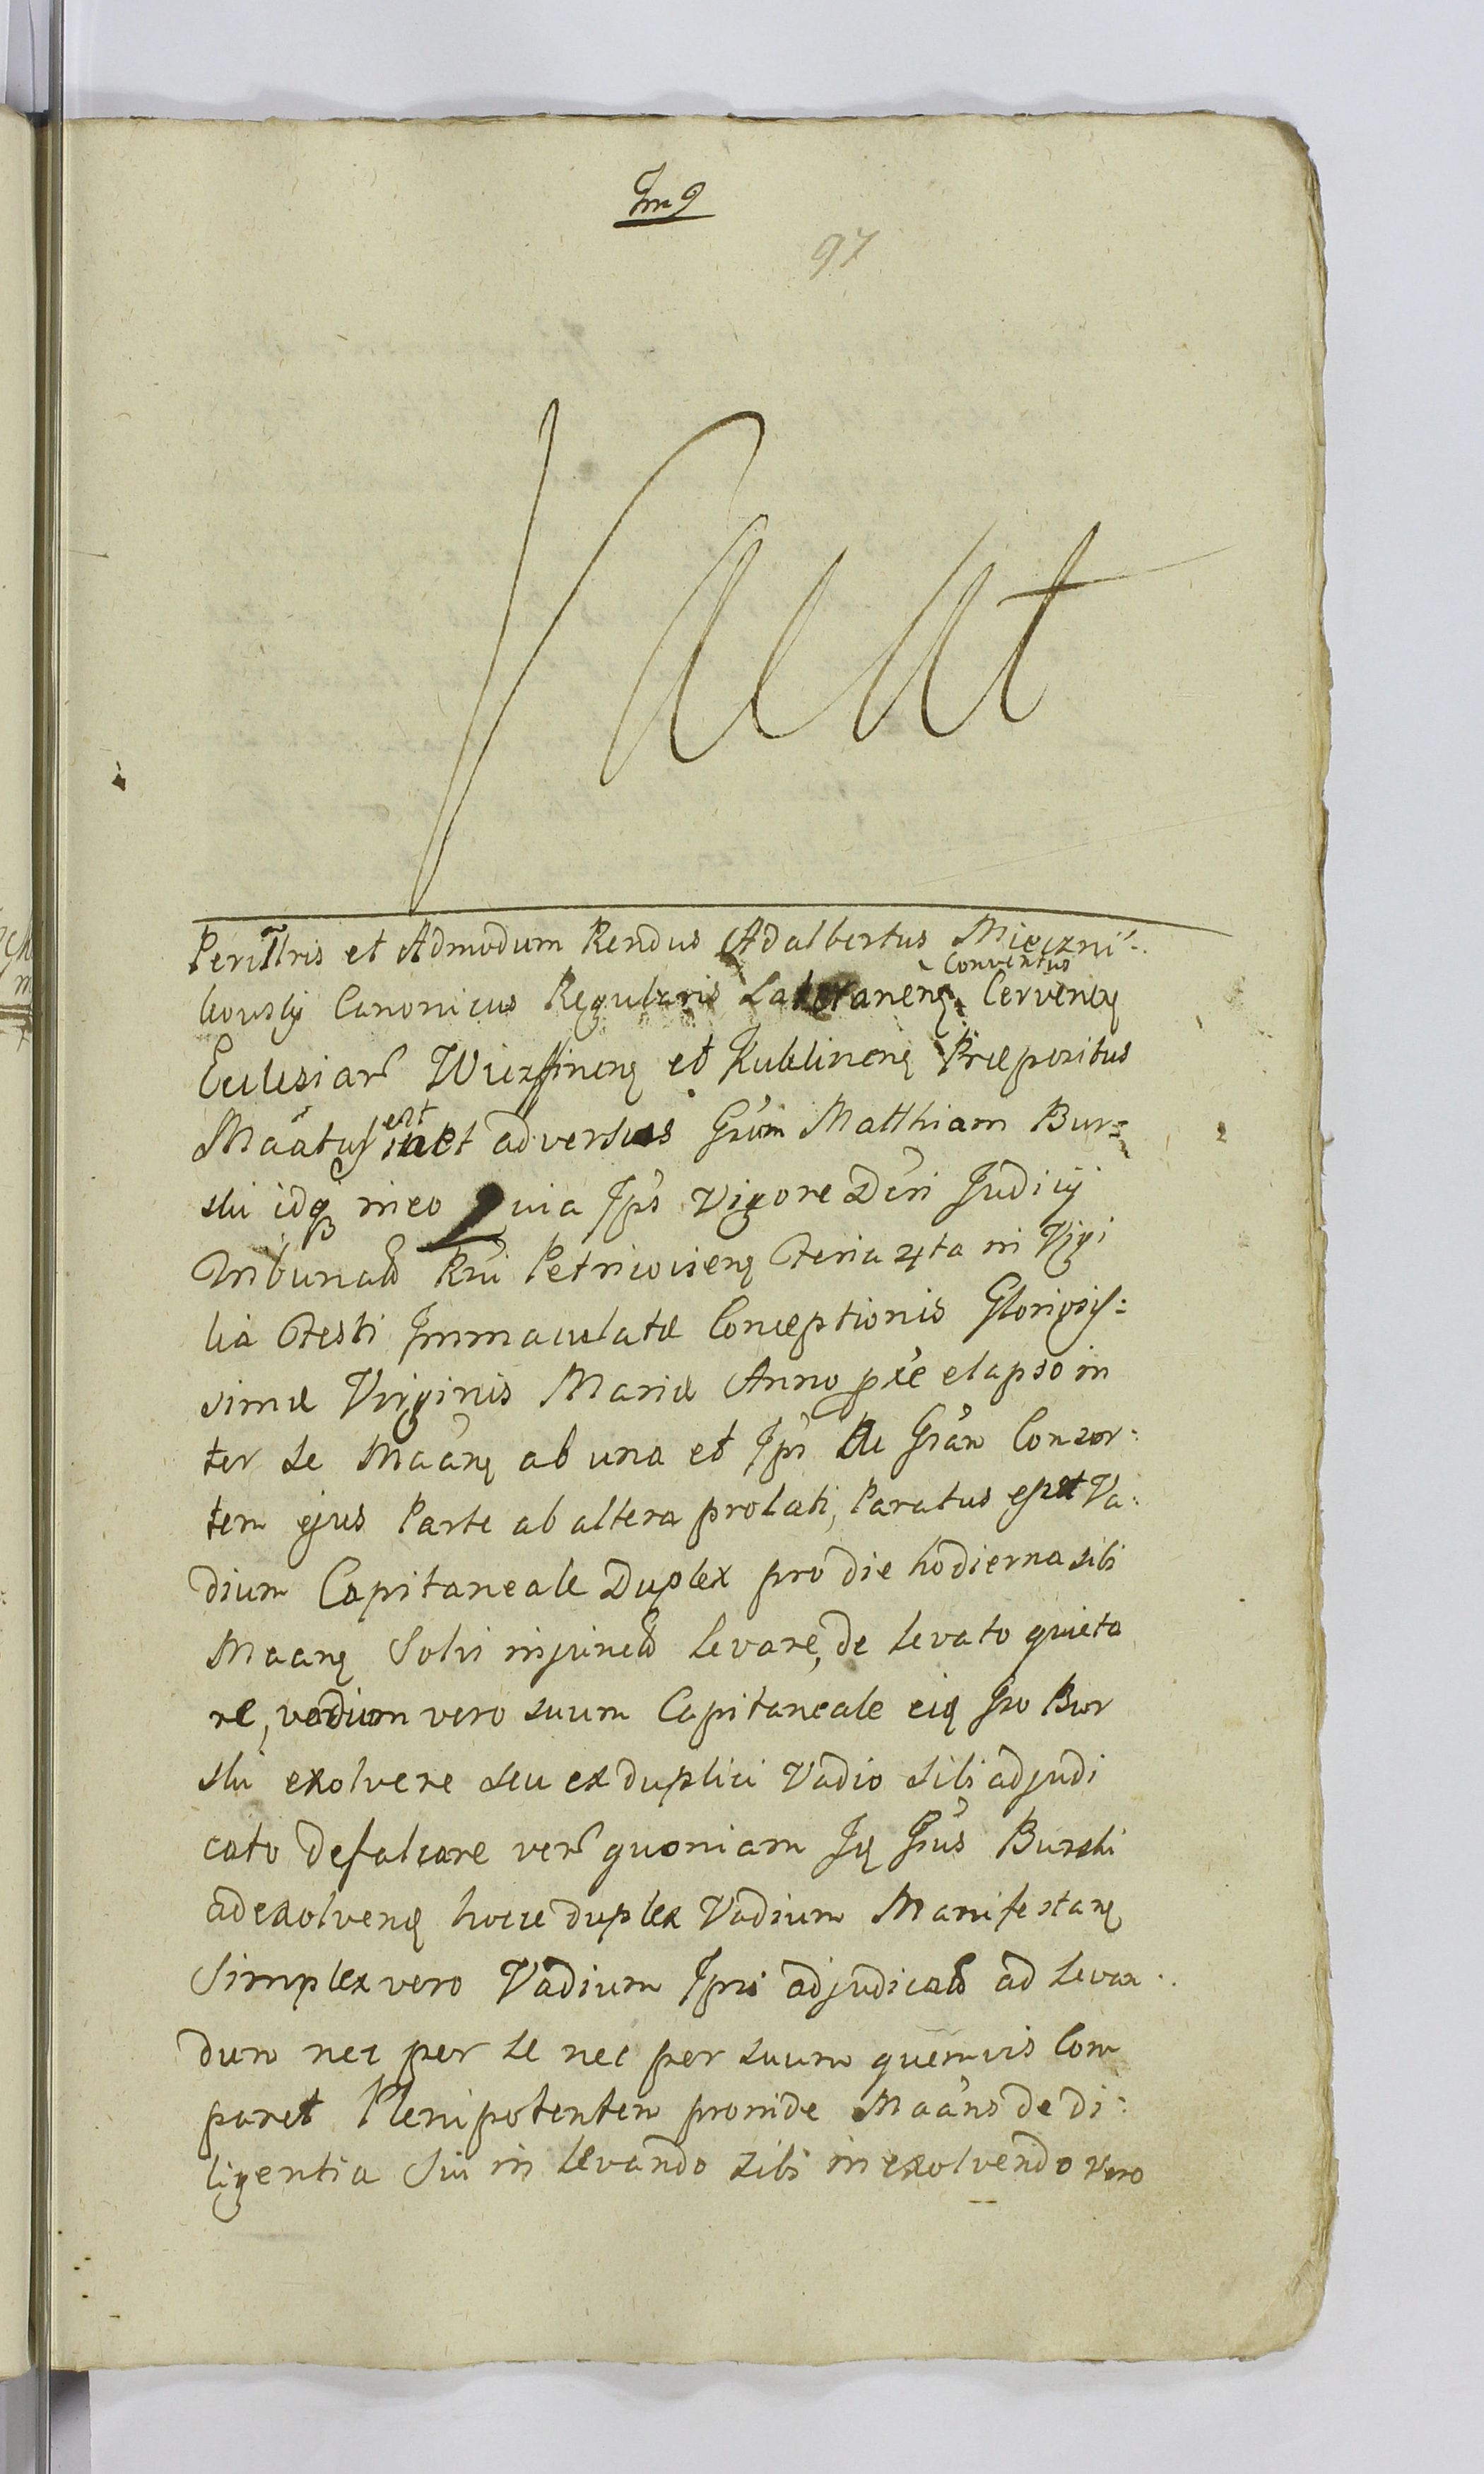 97
Vacat
Perilltris et Admodum Rendus Adalbertus Mieczni:
Conventus
kovsky Canonicus Regularis Lateranenẽ Cervenẽ
Ecclesiar Wierzfinenẽ et Kublinenẽ Præpositus
est
Maatus adversus Grum Matthiam Bur:
ski idq ineo Quia Ips vigore Dcri Judicij
Tribunals Rni Petricoviens Feria 4ta in Vigi
lia Festi Immaculatæ Conceptionis Gloriosis:
simæ Virginis Mariæ Anno præ elapso in
ter se Maanẽ ab una et Ips Ac Gram Conzor:
tem ejus Parte ab altera prolati, Paratus Va:
dium Capitaneale Duplex pro die hodierna sibi
Maanẽ Solvi injunctũ levare, de levato quieta
re, vadium vero suum Capitaneale eid Gro Bur
ski exolvere seu ex duplici Vadio sibi adjudi
cato defalcare ver quoniam Id Grus Burski
ad exolvenẽ hocce duplex Vadium Manifestanẽ
Simplex vero Vadium Ipsi adjudicatũ ad levan:
dum nec per se nec per suum quemvis Com
paret Plenipotentem proinde Maans de di:
ligentia Sui in levando sibi in exolvendo vero